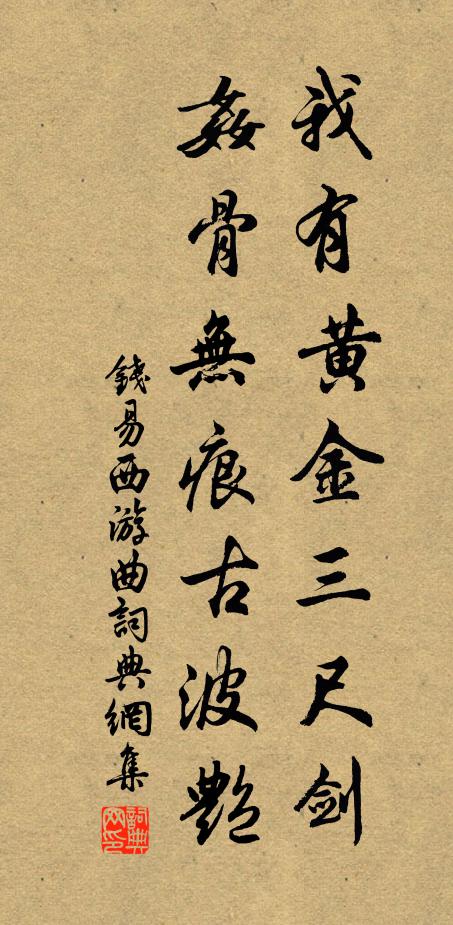 我有黄金三尺劍
姦骨無痕古波艷
錢易西游曲詞典網集
詞典網印